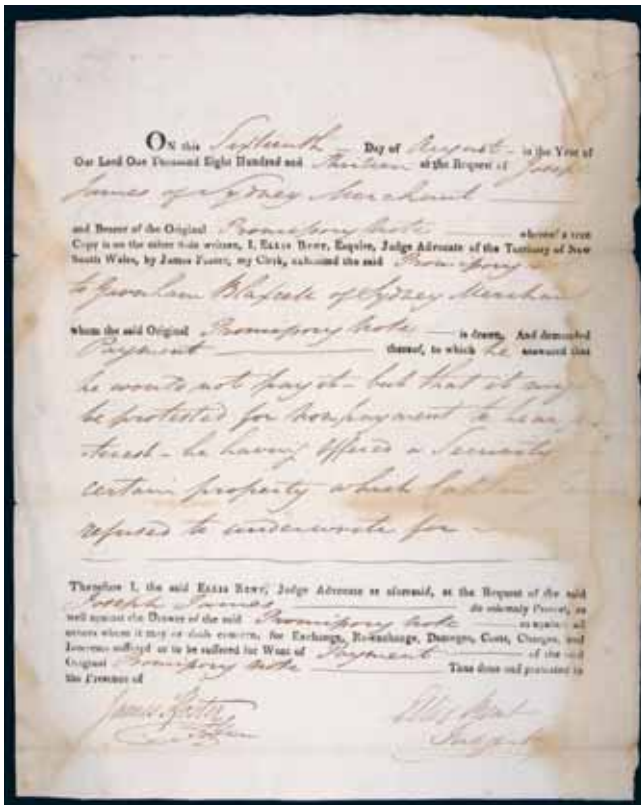 ON this Sixteenth Day of August in the Year of
Our Lord One Thousand Eight Hundred and Thirteen at the Request of Joseph
James of Sydney Merchant
and Bearer of the Original Promissory Note whereof a true
Copy is on the other side written, I, ELLIS BENT, Esquire, Judge Advocate of the Territory of New
South Wales, by James Foster, my Clerk, exhibited the said Promissory
to Gresham Blaxcell of Sydney Merchan
whom the said Original Promissory Note is drawn, And demanded
Payment thereof, to which he answered that
he would not pay it - but that it may
be protested for nonpayment to bear
terest - he having offered a Security
certain property which
refused to underwrite for
Therefore I, the said ELLIS BENT, Judge Advocate as aforesaid, at the Request of the said
Joseph James do solemnly Protest, as
well against the Drawer of the said Promissory Note as against all
others whom it may or doth concern, for Exchange, Re-exchange, Damages, Costs, Charges, and
Interest suffered or to be suffered for Want of Payment of the said
Original Promissory Note Thus done and protested in
the Presence of
James Foster Ellis Bent